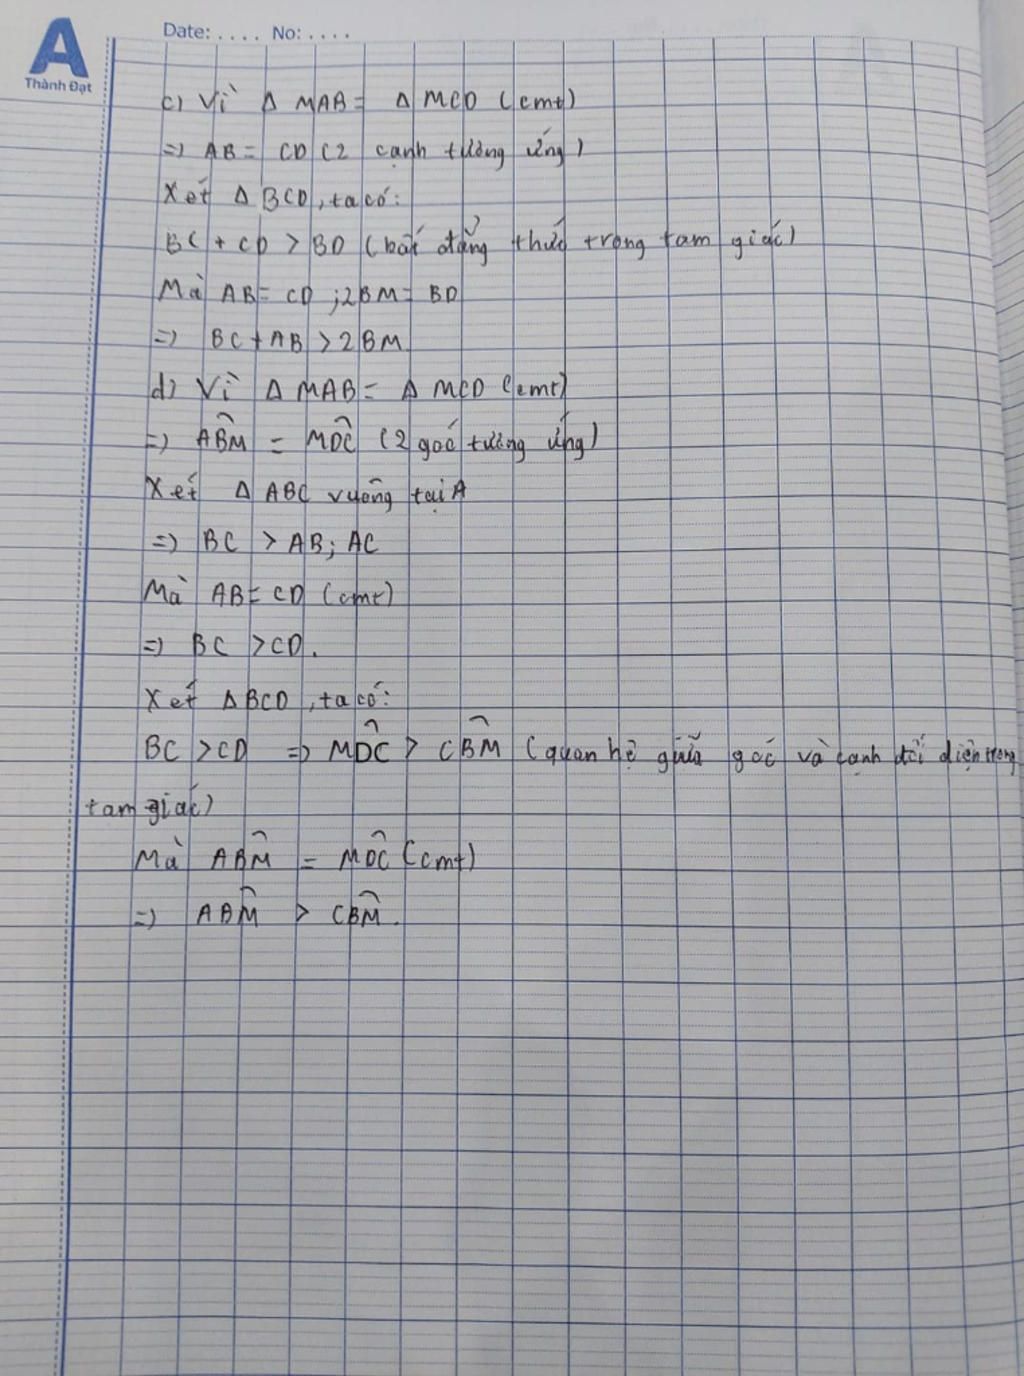 A
Thành Đạt
Date: .... No: ....
c) Vì Δ MAB = Δ MCD (cmt)
=> AB = CD (2 cạnh tương ứng)
Xét Δ BCD, ta có:
BC + CD > BD (bất đẳng thức trong tam giác)
Mà AB = CD ; 2BM = BD
=> BC + AB > 2BM
d) Vì Δ MAB = Δ MCD (cmt)
=> ABM̂ = MDĈ (2 góc tương ứng)
Xét Δ ABC vuông tại A
=> BC > AB; AC
Mà AB = CD (cmt)
=> BC > CD.
Xét Δ BCD, ta có:
BC > CD => MDĈ > CBM̂ (quan hệ giữa góc và cạnh đối diện trong
tam giác)
Mà ABM̂ = MDĈ (cmt)
=> ABM̂ > CBM̂.